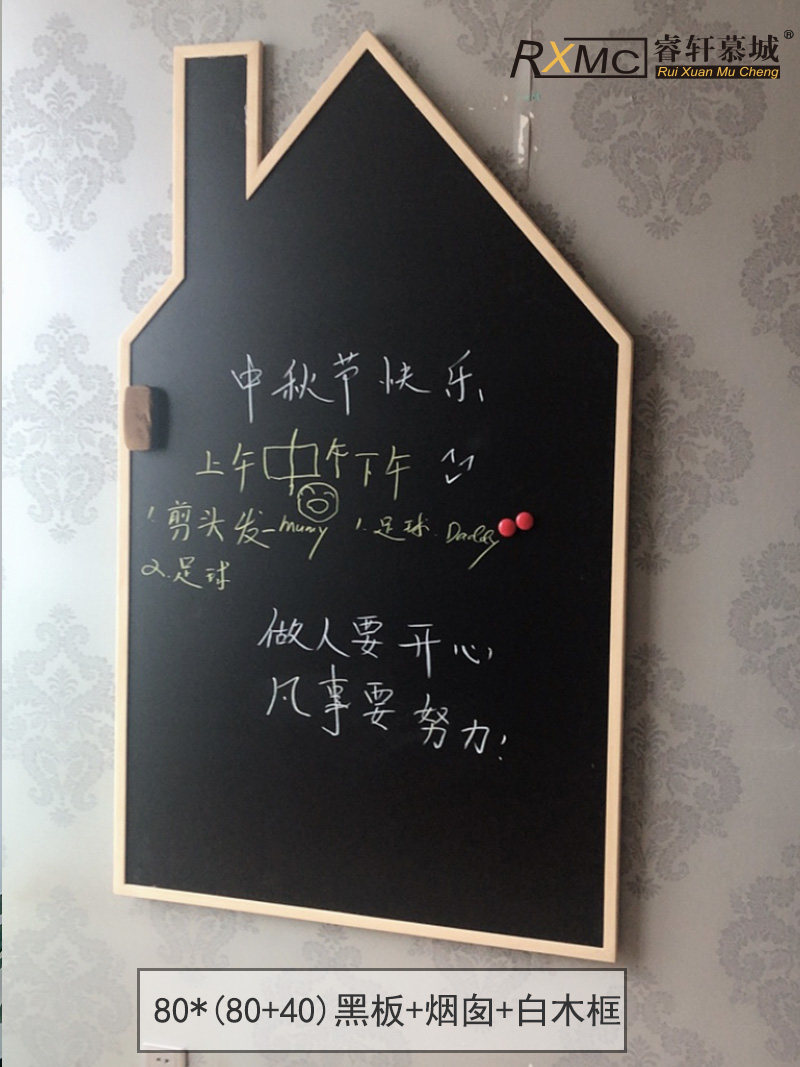 RXMC 睿轩慕城®
Rui Xuan Mu Cheng
中秋节快乐
上午 中午 下午
1.剪头发-mumy 1.足球.Daddy
2.足球
做人要开心,
凡事要努力!
80*(80+40)黑板+烟囱+白木框